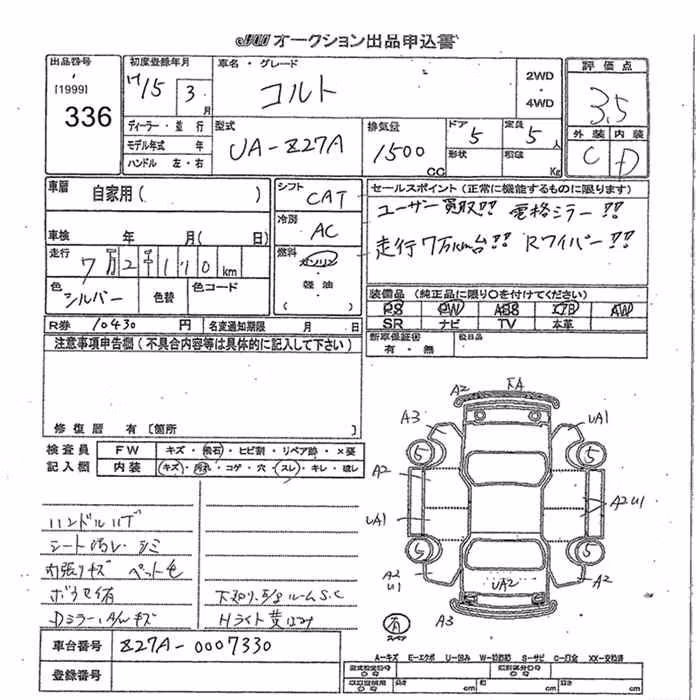 JU オークション出品申込書
出品番号
[1999]
336
初度登録年月
H15年 3月
車名・グレード
コルト
2WD
・
4WD
評価点
3.5
外装 内装
C D
ディーラー・並行
モデル年式 年
ハンドル 左・右
型式
UA-Z27A
排気量
1500 CC
ドア 5
形状
定員 5人
積載 Kg
車歴
自家用( )
シフト
CAT
セールスポイント(正常に機能するものに限ります)
ユーザー買取!! 電格ミラー!!
走行7万km台!! Rワイパー!!
車検 年 月( 日)
冷房
AC
走行
7万2千110km
燃料
ガソリン
軽油
( )
色
シルバー
色替
色コード
装備品(純正品に限り○を付けてください)
PS PW ABS エアB AW
SR ナビ TV 本革
R券 10430円
名変通知期限 月 日
新車保証書
有・無
後日品
注意事項申告欄(不具合内容等は具体的に記入して下さい)
修復歴 有[箇所
検査員
記入欄
FW キズ・飛石・ヒビ割・リペア跡・×要
内装 キズ・汚れ・コゲ・穴・スレ・キレ・ほし
ハンドルハゲ
シート汚レ・シミ
内張リキズ ペット毛
下廻り・E/gルームS.C
Hライト黄ばみ
車台番号 Z27A-0007330
登録番号
A2
A3
UA1
5
5
A2
UA1
A2U1
5
5
A2
U1
UA2
A2
A3
スペア
A-キズ E-エクボ U-凹み W-補修跡 S-サビ C-腐食 XX-交換済